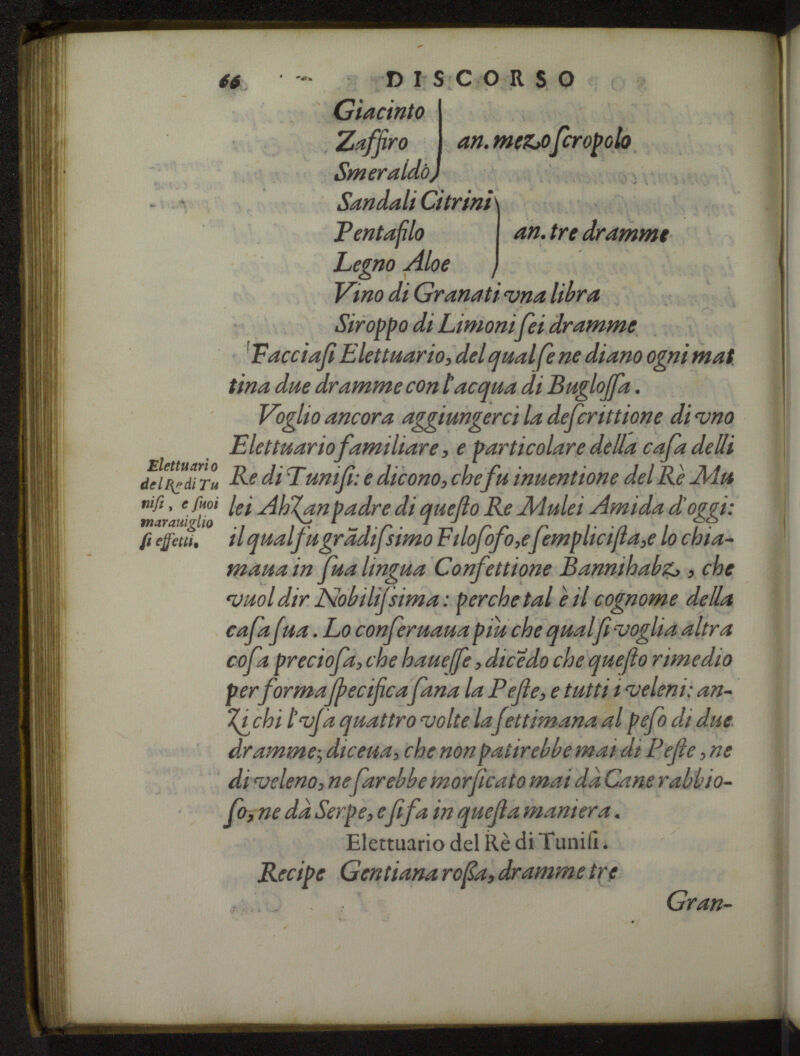 66 DISCORSO
Giacinto
Zaffiro an. mezo scropolo
Smeraldò
Sandali Citrini
Pentafilo an. tre dramme
Legno Aloe
Vino di Granati vna libra
Siroppo di Limoni sei dramme
Facciasi Elettuario, del qual se ne diano ogni mat
tina due dramme con l'acqua di Buglossa.
Voglio ancora aggiungerci la descrittione di vno
Elettuario familiare, e particolare della casa delli
Re di Tunisi: e dicono, che fu inuentione del Rè Mu
lei AhZan padre di questo Re Mulei Amida d'oggi:
il qual fu grãdissimo Filosofo, e semplicista, e lo chia-
maua in sua lingua Confettione Bannihabz, che
vuol dir Nobilissima: perche tal è il cognome della
casa sua. Lo conseruaua più che qual si voglia altra
cosa preciosa, che hauesse, dicẽdo che questo rimedio
per forma specifica sana la Peste, e tutti i veleni: an-
Zi chi l'vsa quattro volte la settimana al peso di due
dramme; diceua, che non patirebbe mai di Peste, ne
di veleno, ne sarebbe morsicato mai dà Cane rabbio-
so, ne dà Serpe, e si fa in questa maniera.
Elettuario
del Re di Tu
nisi, e suoi
marauiglio
si effetti.
Elettuario del Rè di Tunisi.
Recipe Gentiana rossa, dramme tre
Gran-